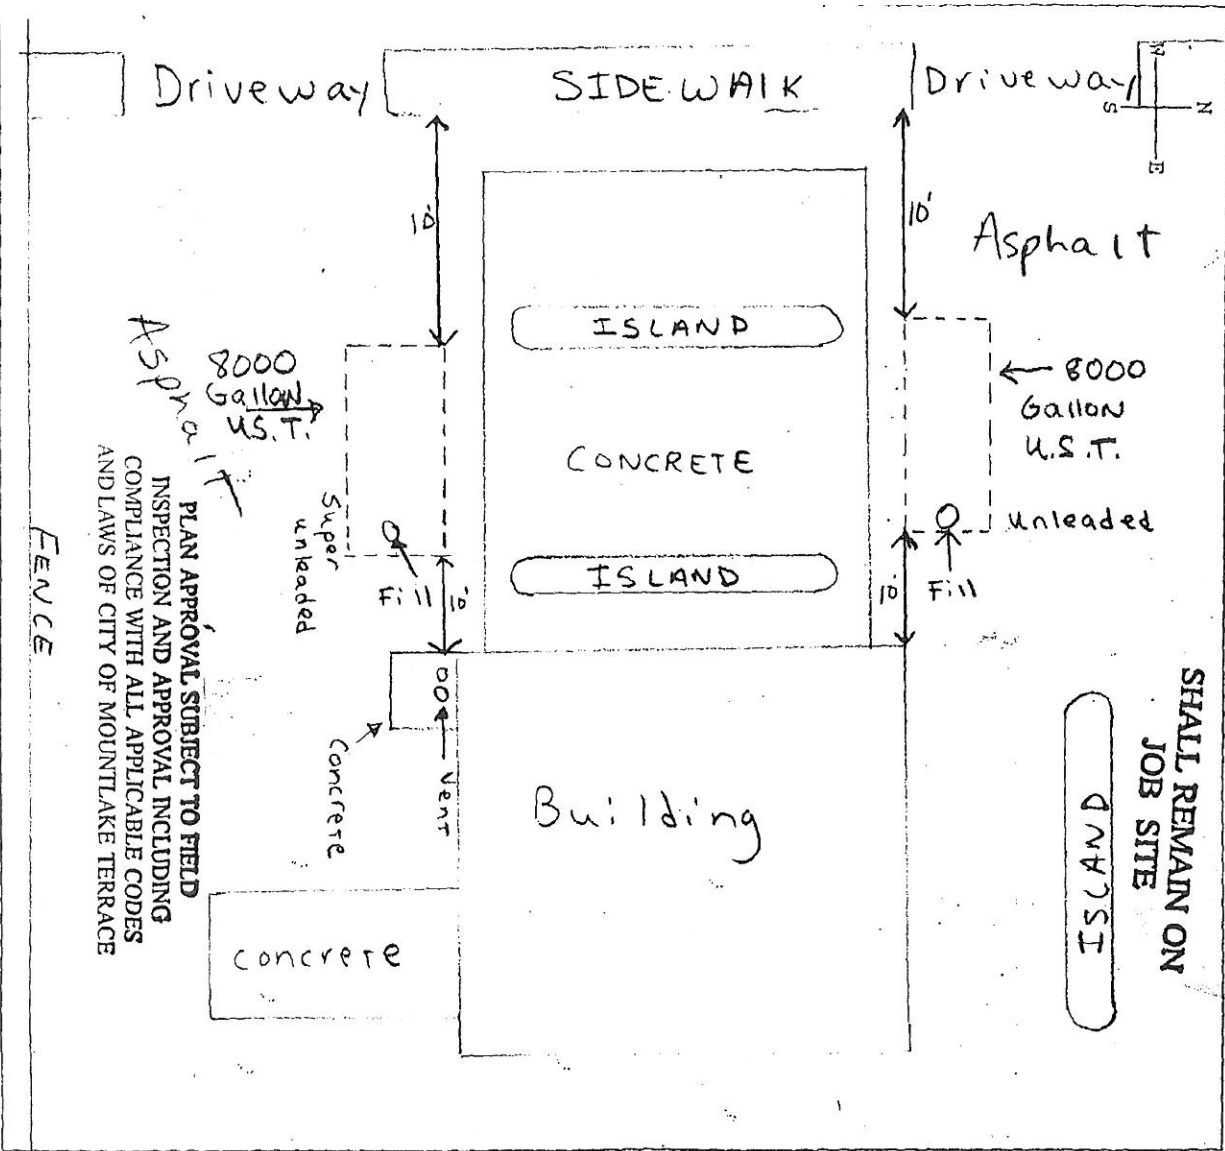 Driveway
SIDEWALK
Driveway
W
S
N
E
10'
10'
Asphalt
ISLAND
Asphalt
8000
Gallon
U.S.T.
8000
Gallon
U.S.T.
CONCRETE
Super
unleaded
unleaded
Fill
10'
ISLAND
10'
Fill
FENCE
PLAN APPROVAL SUBJECT TO FIELD
INSPECTION AND APPROVAL INCLUDING
COMPLIANCE WITH ALL APPLICABLE CODES
AND LAWS OF CITY OF MOUNTLAKE TERRACE
Concrete
Vent
Building
SHALL REMAIN ON
JOB SITE
ISLAND
concrete